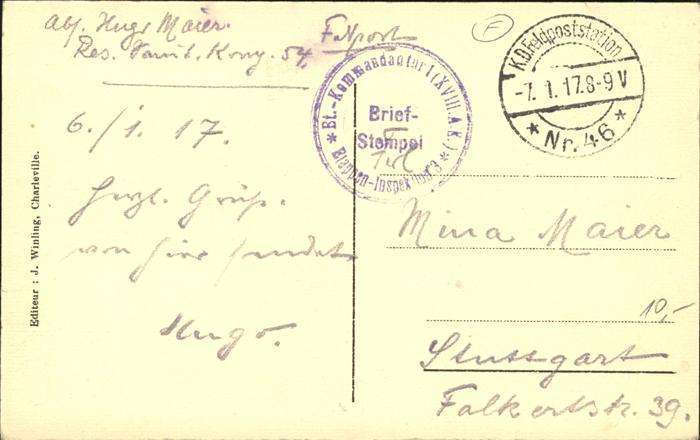 Abs. Hugo Maier.
Res. Sanit. Komp. 54.
Feldpost
F
Et.-Kommandantur 1 (XVIII. A.K.)
Brief-
Stempel
Etappen-Inspektion 3
K.D. Feldpoststation
-7. 1. 17. 8-9 V
Nr. 46
6./1. 17.
Herzl. Grüße
von hier sendet
Hugo.
Editeur : J. Winling, Charleville.
Mina Maier
10,-
Stuttgart
Falkertstr. 39.